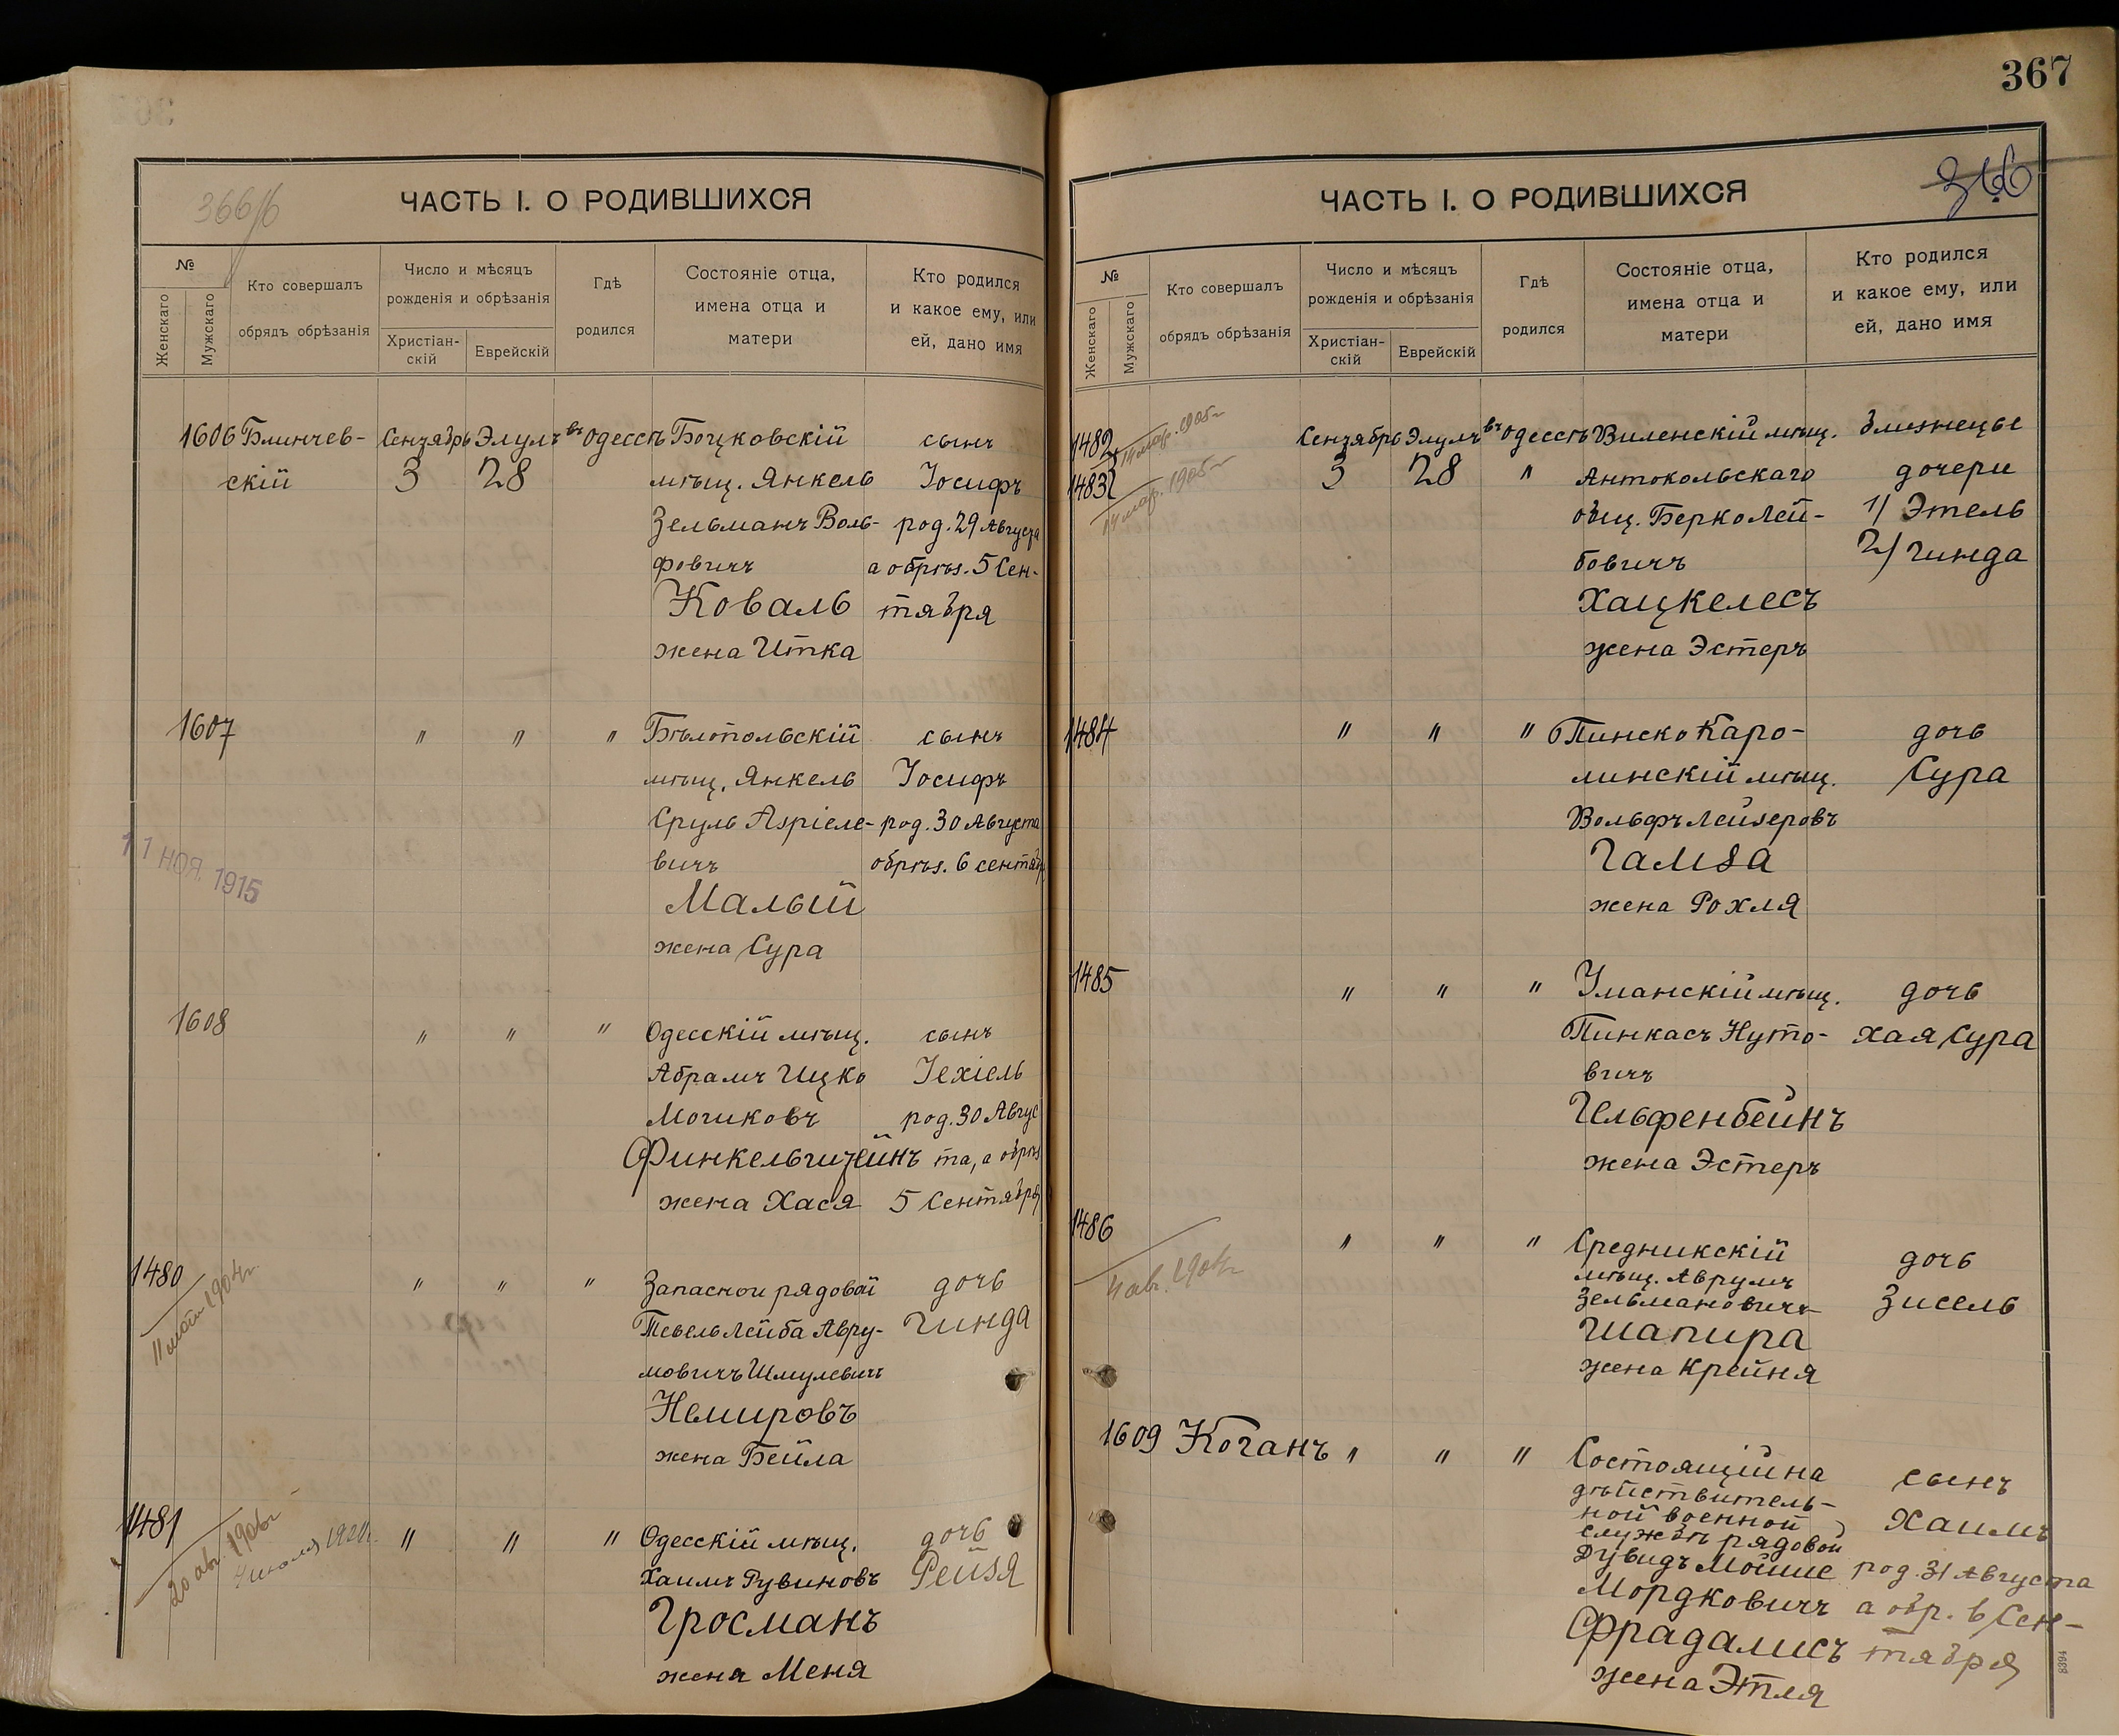 367
366/б
ЧАСТЬ I. О РОДИВШИХСЯ
№
Женскаго
Мужскаго
Кто совершалъ
обрядъ обрѣзанія
Число и мѣсяцъ
рожденія и обрѣзанія
Христіан-
скій
Еврейскій
Гдѣ
родился
Состояніе отца,
имена отца и
матери
Кто родился
и какое ему, или
ей, дано имя
1606 Блинчев- Сентябрь Элулъ въ Одессѣ Богуковскій сынъ
скій 3 28 мѣщ. Янкель Іосифъ
Зельманъ Воль- род. 29 Августа
фовичъ а обрѣз. 5 Сен-
Коваль тября
жена Итка
1607 " " " Бѣлопольскій сынъ
мѣщ. Янкель Іосифъ
Сруль Азріеле- род. 30 Августа
вичъ обрѣз. 6 сентяб
11 НОЯ. 1915
Малый
жена Сура
1608 " " " Одесскій мѣщ. сынъ
Абрамъ Ицко Іехіель
Мошковъ род. 30 Авгус
Финкельштейнъ та, а обрѣз
жена Хася 5 Сентября
1480 " " " Запасной рядовой дочь
11 мая 1904 г.
Тевель Лейба Авру- Гинда
мовичъ Шмулевичъ
Немировъ
жена Бейла
1481 " " " Одесскій мѣщ. дочь
20 авг. 1906 г.
Хаимъ Рувиновъ Рейзя
Гросманъ
жена Меня
ЧАСТЬ I. О РОДИВШИХСЯ
366
№
Женскаго
Мужскаго
Кто совершалъ
обрядъ обрѣзанія
Число и мѣсяцъ
рожденія и обрѣзанія
Христіан-
скій
Еврейскій
Гдѣ
родился
Состояніе отца,
имена отца и
матери
Кто родился
и какое ему, или
ей, дано имя
1482 14 мар. 1905 г. Сентябрь Элулъ въ Одессѣ Виленскій мѣщ. близнецы
1483 14 мар. 1905 г. 3 28 " Антокольскаго дочери
общ. Берко Лей- 1/ Этель
бовичъ 2/ Гинда
Хацкелесъ
жена Эстеръ
1484 " " " Пинско Каро- дочь
линскій мѣщ. Сура
Вольфъ Лейзеровъ
Гамза
жена Рохля
1485 " " " Уманскій мѣщ. дочь
Пинкасъ Нуто- Хая Сура
вичъ
Гельфенбейнъ
жена Эстеръ
1486 " " " Средникскій дочь
4 авг. 1904 г.
мѣщ. Аврумъ
Зельмановичъ Зисель
Шапира
жена Крейня
1609 Коганъ " " " Состоящій на сынъ
дѣйствитель-
ной военной Хаимъ
службѣ рядовой
Дувидъ Мойше род. 31 Августа
Мордковичъ а обр. 6 Сен-
Фрадалисъ тября
жена Этля
8394